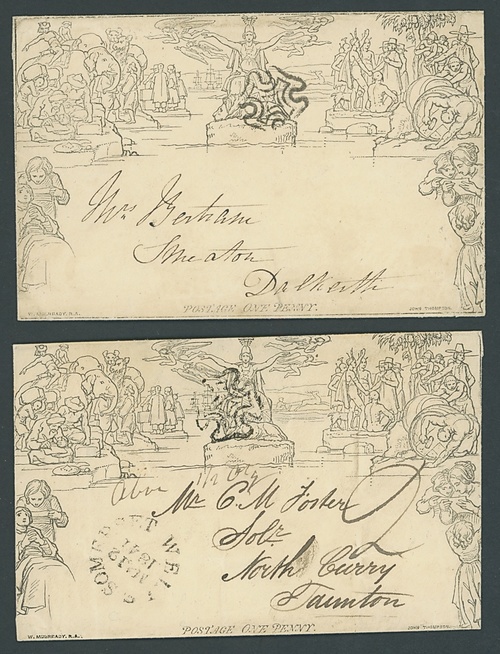 Mrs Bertram
Smeaton
Dalkeith
POSTAGE ONE PENNY.
W. MULREADY. R.A.
JOHN THOMPSON.
Above 1/2 Oz
2
Mr C. M. Foster
Solr
North Curry
Taunton
SOMERSET
1841
POSTAGE ONE PENNY.
W. MULREADY. R.A.
JOHN THOMPSON.